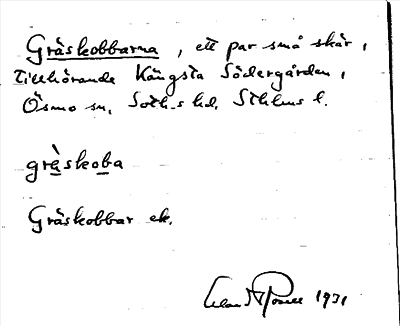 Gräskobbarna, ett par små skär,
tillhörande Kängsta Södergården,
Ösmo sn, Soth.s hd, Sthlms l.
gràskoba
Gräskobbar ek.
1931